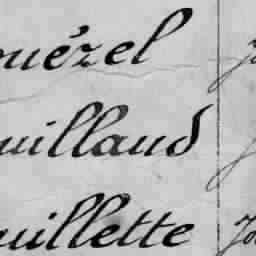 ouézel
uillaud
uillette